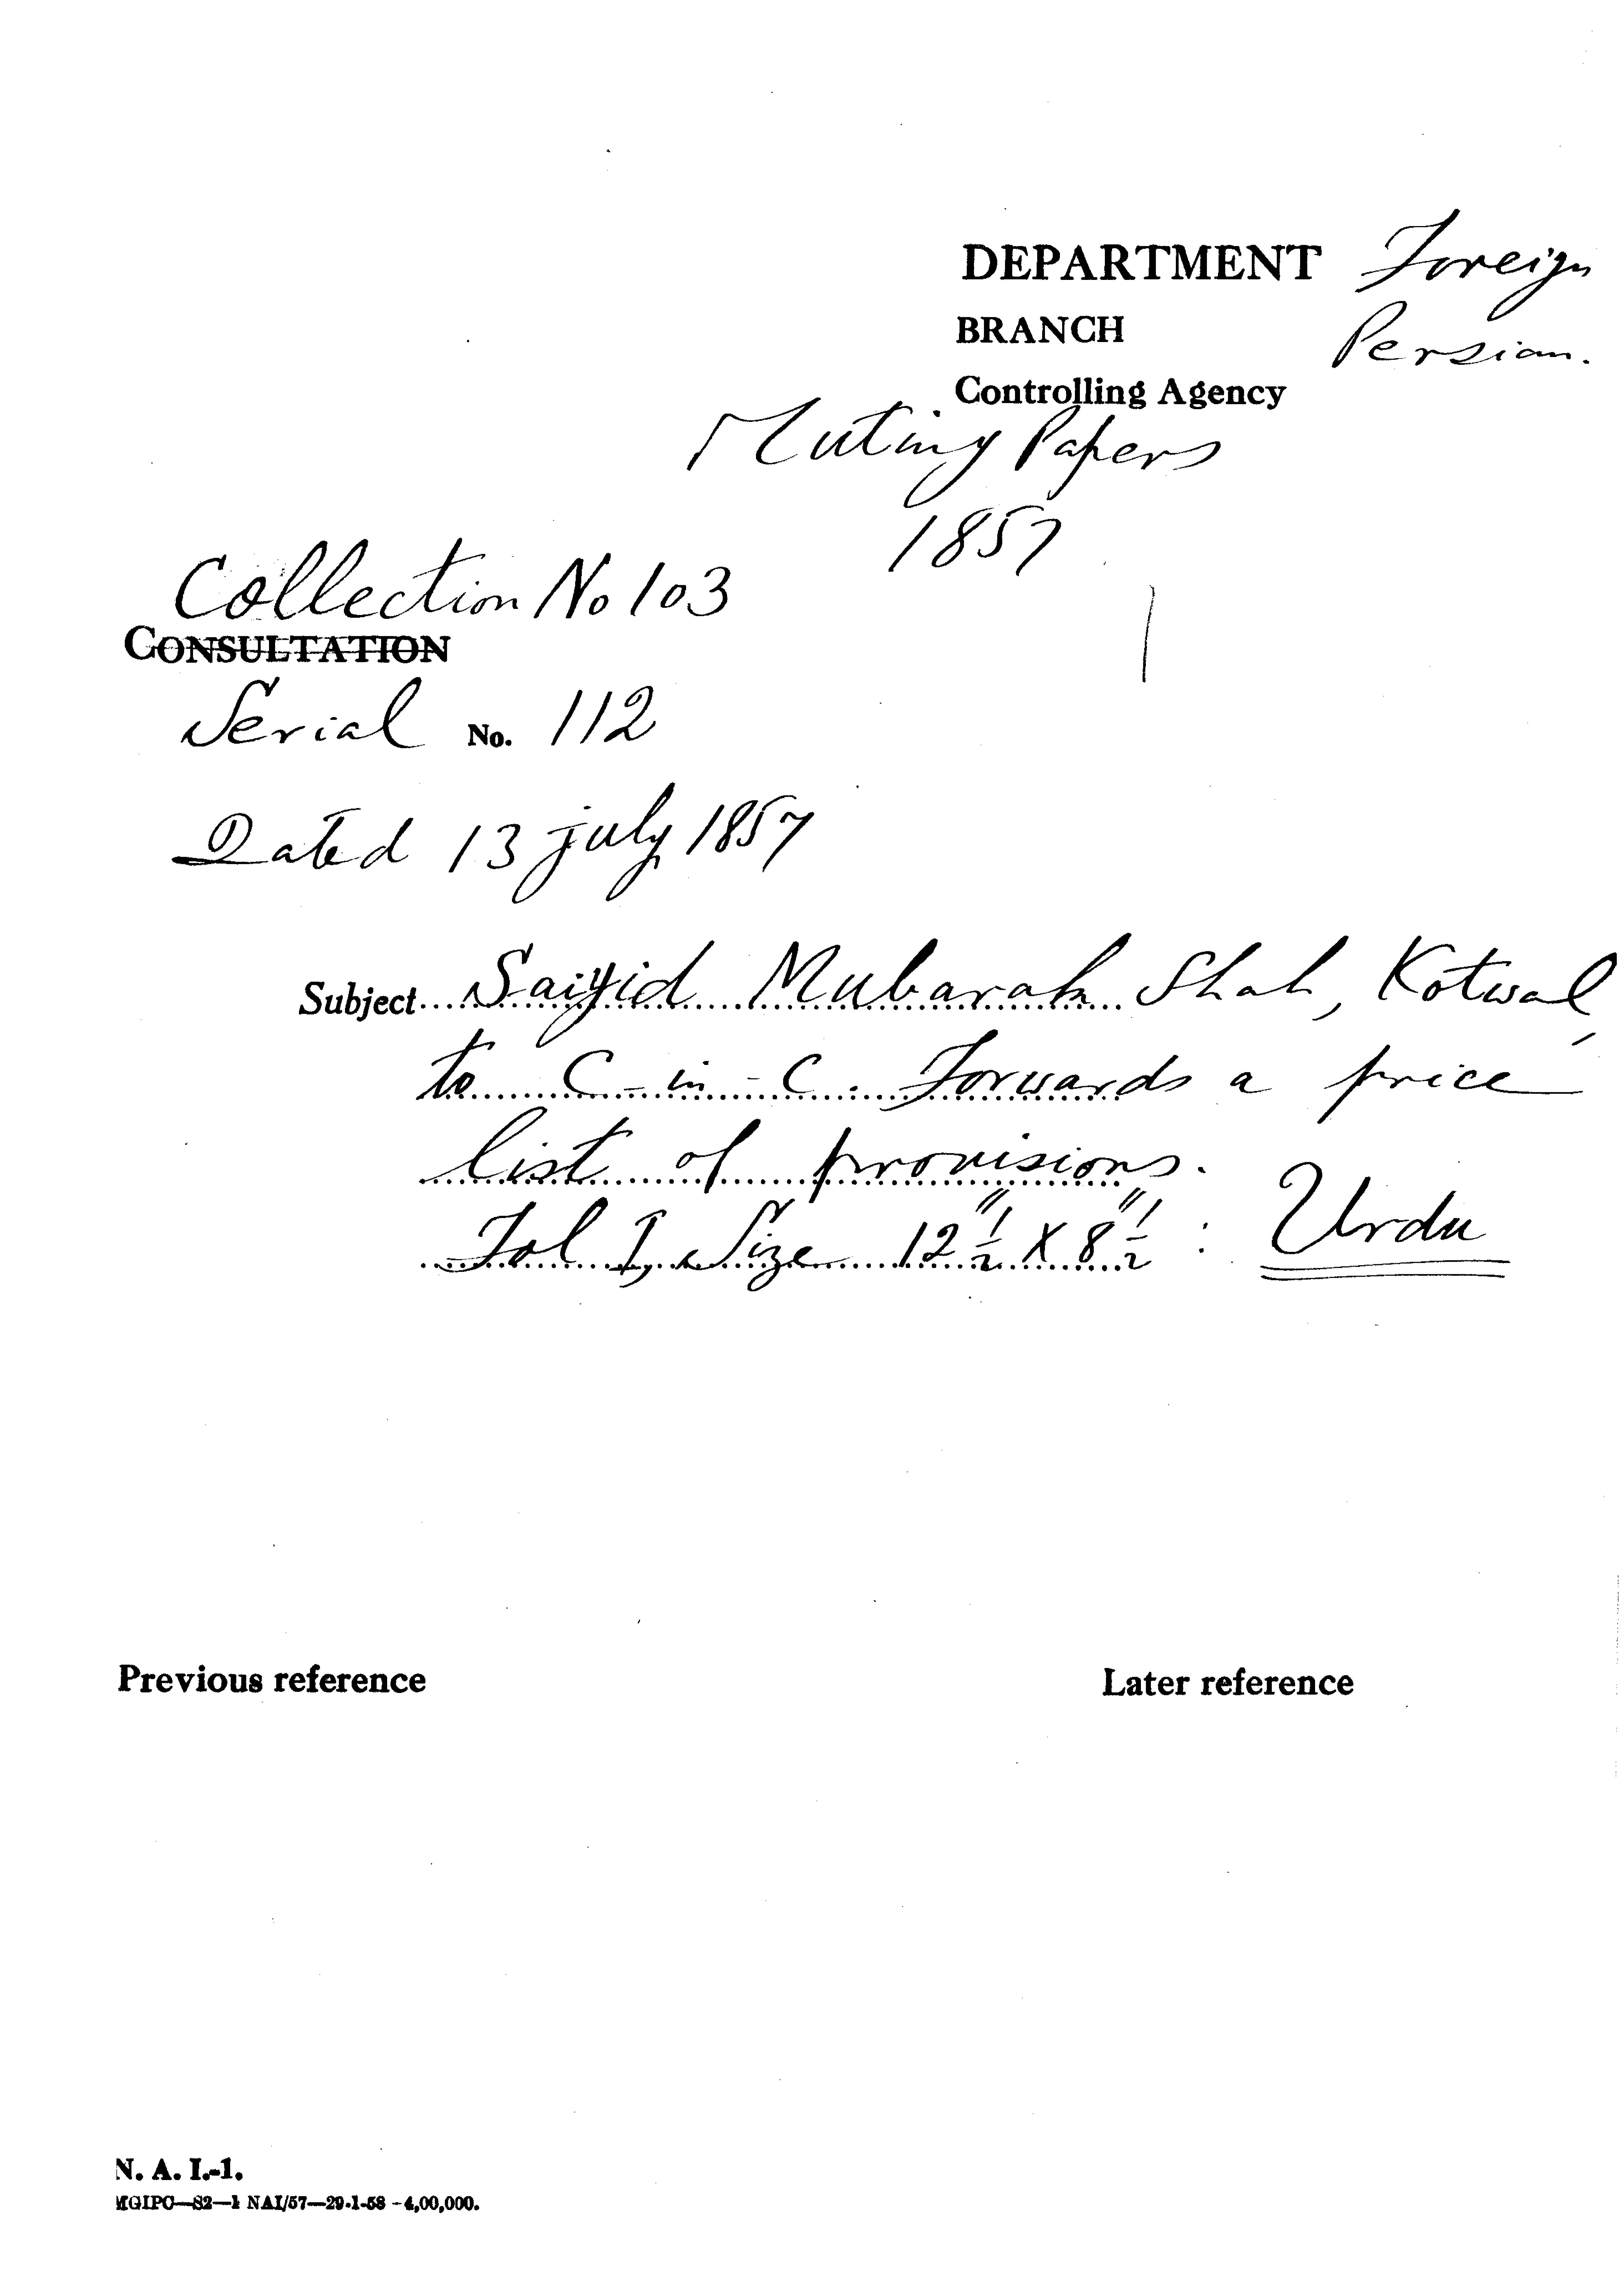 DEPARTMENT Foreign
BRANCH Persian.
Controlling Agency
Mutiny Papers
1857
Collection No 103
CONSULTATION
Serial No. 112
Dated 13 july 1857
Subject Saiyid Mubarak Shah, Kotwal,
to C-in-C. Forwards a price
list of provisions.
Fol I, Size 12"1/2 X 8"1/2 : Urdu
Previous reference
Later reference
N. A. I.-1.
MGIPC—S2—1 NAI/57—29-1-58 -4,00,000.